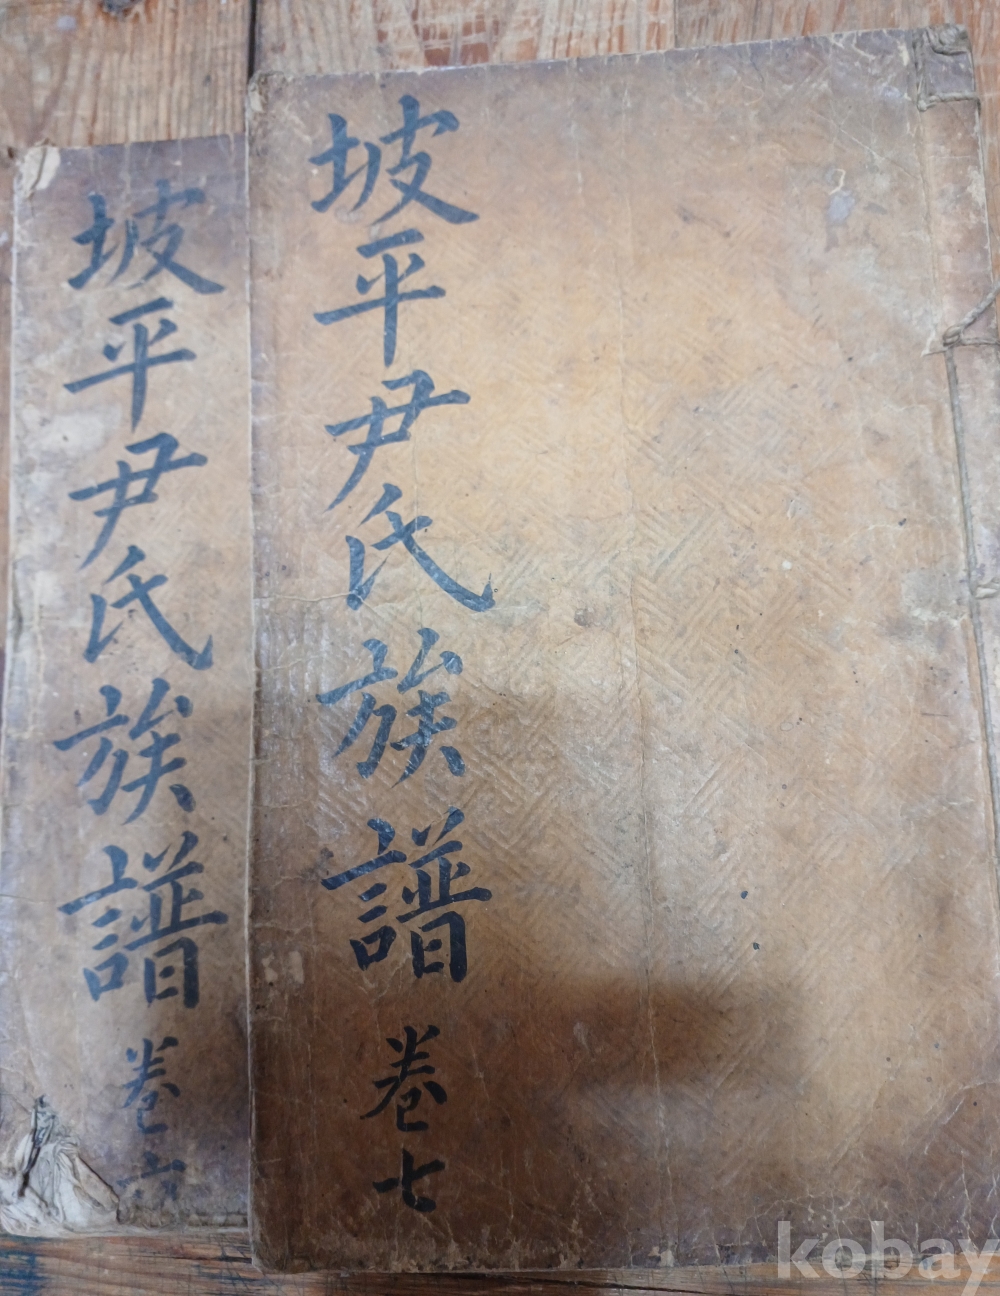 坡平尹氏族譜 卷七
坡平尹氏族譜 卷六
kobay